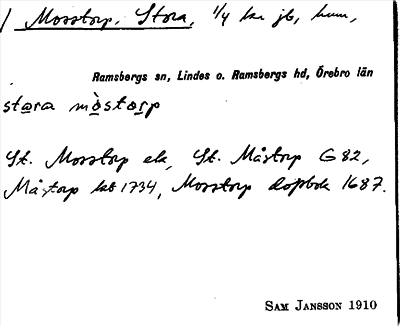 / Mosstorp, Stora, 1/4 kr jb, hem,
Ramsbergs sn, Lindes o. Ramsbergs hd, Örebro län
stɑra mòstɑrp
St. Mosstorp ek, St. Måstorp G 82,
Måstorp kb 1734, Mosstorp dopbok 1687.
SAM JANSSON 1910